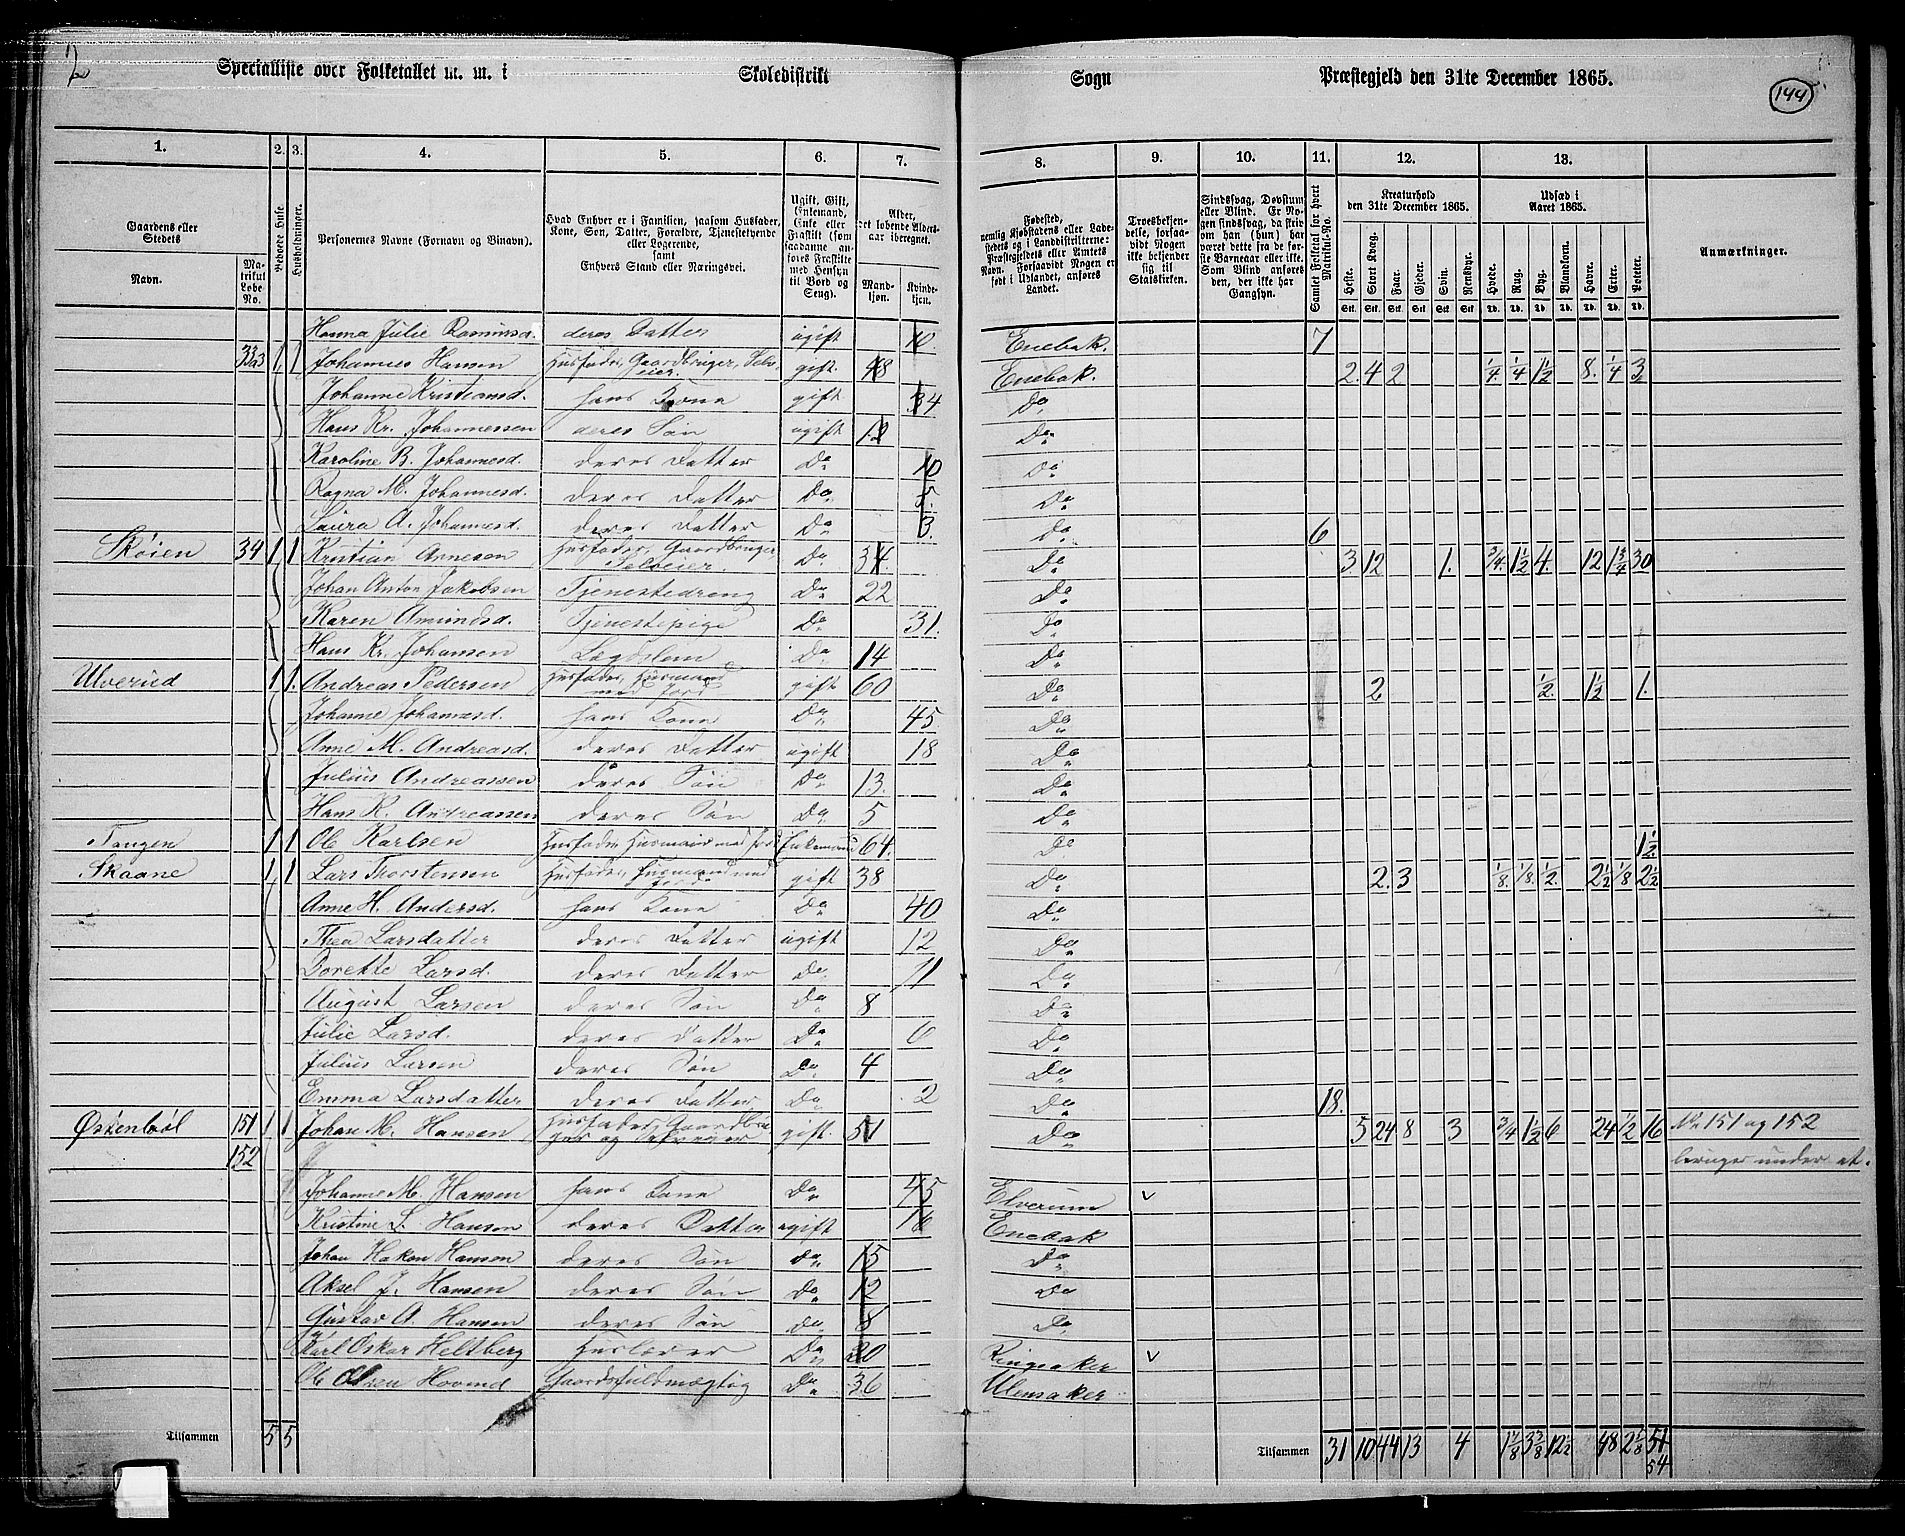 2
Specialliste over Folketallet m. m. i Skoledistrikt Sogn Præstegjeld den 31te December 1865.
144
1. 2. 3. 4. 5. 6. 7. 8. 9. 10. 11. 12. 13.
Gaardens eller Stedets
Navn.
Matrikul Løbe-No.
Beboede Huse
Husholdninger.
Personernes Navne (Fornavn og Binavn).
Hvad Enhver er i Familien, saasom Husfader, Kone, Søn, Datter, Forældre, Tjenestetyende eller Logerende, samt Enhvers Stand eller Næringsvei.
Ugift, Gift, Enkemand, Enke eller Fraskilt (som saadanne anføres Fraskilte med Hensyn til Bord og Seng).
Alder, det løbende Alders-aar iberegnet.
Mandkjøn. Kvindekjøn.
Fødested, nemlig Kjøbstadens eller Ladestedets og i Landdistrikterne: Præstegjeldets eller Amtets Navn. Forsaavidt Nogen er født i Udlandet, anføres Landet.
Troesbekjendelse, forsaavidt Nogen ikke bekjender sig til Statskirken.
Sindssvag, Døvstum eller Blind. Er Nogen sindssvag, da skrives om han (hun) har været dette fra de første Barneaar eller ikke. Som Blind anføres den, der ikke har Gangsyn.
Samlet Folketal for hvert Matrikul-No.
Kreaturhold den 31te December 1865.
Heste. Stort Kvæg. Faar. Gjeder. Svin. Rensdyr.
Udsæd i Aaret 1865.
Hvede. Rug. Byg. Blandkorn. Havre. Erter. Poteter.
Anmærkninger.
Hanna Julie Rasmusd. deres Datter ugift 10. Enebak. 7
33a3 1 1 Johannes Hansen Husfader, Gaardbruger, Selveier. gift. 48 Enebak. 2. 4 2 1/4. 1/4 1 1/2 8. 1/4 3
Johanne Kristiansd. hans Kone gift 34 Do.
Hans Kr. Johannessen deres Søn ugift 12 Do
Karoline B. Johannesd. deres Datter Do 10 Do
Ragna M. Johannesd. deres Datter Do 5. Do
Laura A. Johannesd. deres Datter Do 3. Do. 6
Skøien 34 1 1 Kristian Arnesen Husfader, Gaardbruger Selveier. Do 34 Do 3. 12 1. 3/4. 1 1/2 4. 12 1 3/4 30
Johan Anton Jakobsen Tjenestedreng Do 22 Do
Karen Amundsd. Tjenestepige Do 31. Do
Hans Kr. Johansen Lægdslem Do 14 Do
Ulverud 1 1. Andreas Pedersen Husfader, Husmand med Jord gift 60 Do 2 1/2. 1 1/2 1.
Johanne Johannesd. hans Kone Do 45. Do
Anne M. Andreasd. deres Datter ugift 18 Do
Julius Andreassen deres Søn Do 13. Do
Hans K. Andreassen deres Søn Do 5 Do
Tangen 1 1 Ole Karlsen Husfader, Husmand med Jord Enkemand 64. Do 1 1/2.
Skaane 1 1 Lars Thorstensen Husfader, Husmand med Jord gift 38 Do 2. 3 1/8. 1/8. 1/2. 2 1/2 1/8 2 1/2
Anne H. Andersd. hans Kone Do 40 Do
Thea Larsdatter deres Datter ugift 12 Do
Dorette Larsd. deres Datter Do. 11 Do
August Larsen deres Søn Do 8 Do
Julie Larsd. deres Datter Do 6 Do
Julius Larsen deres Søn Do. 4 Do
Emma Larsdatter deres Datter Do 2 Do 18.
Østenbøl 151 1 1 Johan M. Hansen Husfader, Gaardbruger og Selveier gift. 51 Do 5 24 8 3 3/4 1 1/2 6 24 1/2 16 No 151 og 152
152 bruges under et.
Johanne M. Hansen hans Kone Do 45 Elverum v
Kristine L. Hansen deres Datter ugift 16 Enebak
Johan Hakon Hansen deres Søn Do 15 Do
Aksel J. Hansen deres Søn Do 12 Do
Gustav A. Hansen deres Søn Do 8 Do.
Karl Oskar Heltberg Huslærer Do 20 Ringsaker v
Ole Olsen Hovind Gaardsfuldmægtig Do 36 Ulensaker
Tilsammen 5 5 Tilsammen 31 10 44 13 4 1 7/8 3 3/8 12 1/2 48 2 5/8 51
54